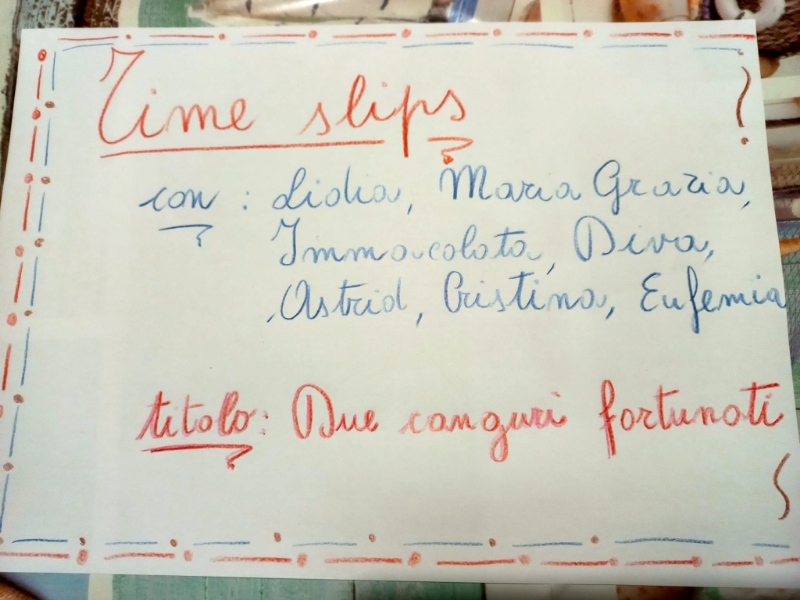 Time slips
con : Lidia, Maria Grazia,
Immacolata, Diva,
Astrid, Cristina, Eufemia
titolo: Due canguri fortunati